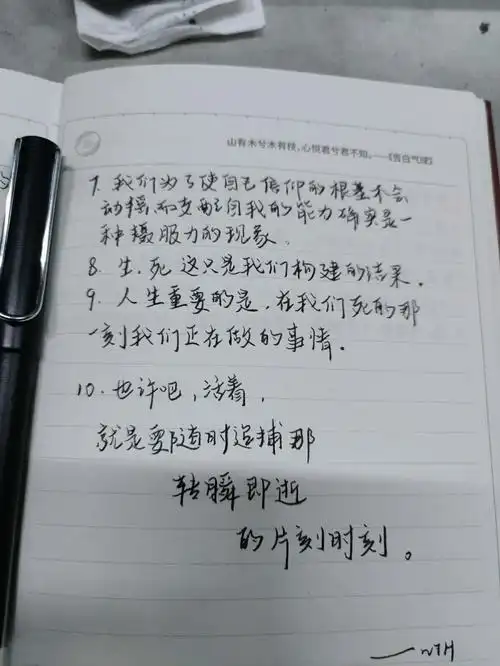 山有木兮木有枝,心悦君兮君不知。——《告白气球》
7. 我们为了使自己信仰的根基不会
动摇,而支配自我的能力确实是一
种摄服力的现象。
8. 生、死 这只是我们构建的结果。
9. 人生重要的是,在我们死的那
一刻我们正在做的事情。
10. 也许吧,活着,
就是要随时追捕那
转瞬即逝
的片刻时刻。